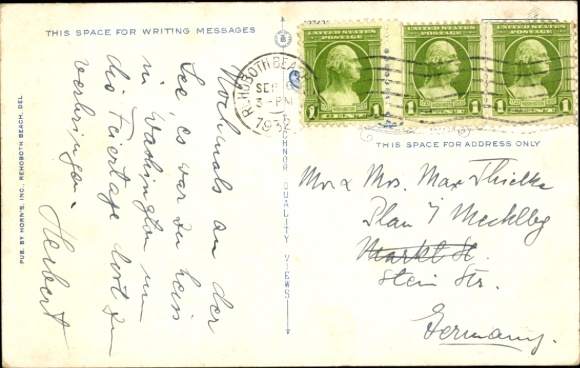 THIS SPACE FOR WRITING MESSAGES
Nochmals an der
See, es war zu heiss
in Washington um
die Feiertage dort zu
verbringen.
Herbert
PUB. BY HORN'S, INC., REHOBOTH BEACH, DEL.
TICHNOR QUALITY VIEWS
REHOBOTH BEACH
SEP
3-PM
193
UNITED STATES POSTAGE
1 CENT 1
UNITED STATES POSTAGE
1 CENT 1
UNITED STATES POSTAGE
1 CENT 1
THIS SPACE FOR ADDRESS ONLY
Mr & Mrs. Max Thielke
Plau i/ Mecklbg
Markt St.
Stein Str.
Germany.